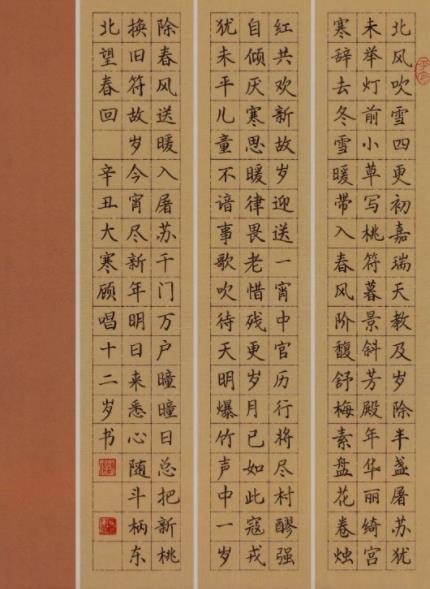 北风吹雪四更初嘉瑞天教及岁除半盏屠苏犹
未举灯前小草写桃符暮景斜芳殿年华丽绮宫
寒辞去冬雪暖带入春风阶馥舒梅素盘花卷烛
红共欢新故岁迎送一宵中官历行将尽村醪强
自倾厌寒思暖律畏老惜残更岁月已如此寇戎
犹未平儿童不谙事歌吹待天明爆竹声中一岁
除春风送暖入屠苏千门万户曈曈日总把新桃
换旧符故岁今宵尽新年明日来悉心随斗柄东
北望春回 辛丑大寒顾唱十二岁书